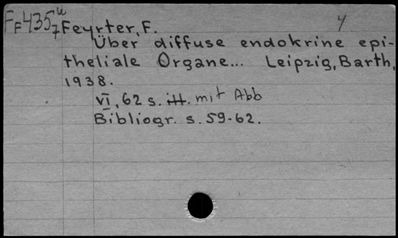 FF435u 4
7 Feyrter, F.
Über diffuse endokrine epi-
theliale Organe... Leipzig, Barth,
1938.
VI, 62 s. ill. mit Abb
Bibliogr. s. 59-62.